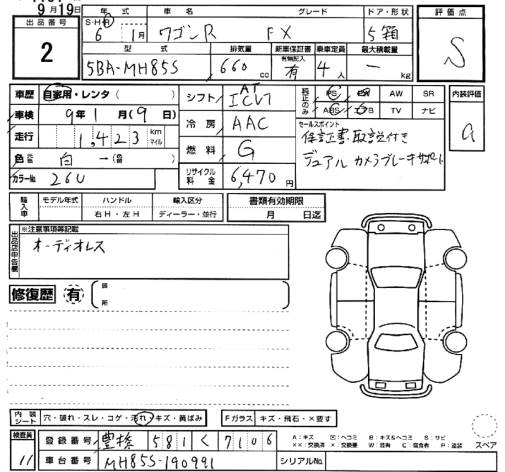 9月19日
出品番号
2
年式
車名
グレード
ドア・形状
評価点
S・H・R
6年 1月
ワゴンR
FX
5箱
S
型式
排気量
新車保証書
乗車定員
最大積載量
5BA-MH85S
660 cc
有無記入
有
4人
kg
車歴
自家用・レンタ( )
車検
9年1月(9)日
走行
1,423 km マイル
色
元色
白→(色 )
カラーNo.
26U
シフト
AT
ICVT
冷房
AAC
燃料
G
リサイクル料金
6,470円
純正のみ
PS
SR
AW
ABS
TV
ナビ
セールスポイント
保証書.取説付き
デュアルカメラブレーキサポート
内装評価
a
輸入車
モデル年式
ハンドル
輸入区分
年
右H・左H
ディーラー・並行
書類有効期限
月 日迄
出品店申告欄
※注意事項等記載
オーディオレス
修復歴
有
箇所
内装シート
穴・破れ・スレ・コゲ・汚れ・キズ・黄ばみ
Fガラス
キズ・飛石・×要す
検査員
11
登録番号
豊橋 581 く 7106
車台番号
MH85S-190991
シリアルNo.
A:キズ
U:ヘコミ
B:キズ&ヘコミ
S:サビ
××:交換済
×:交換要
P:塗装
スペア